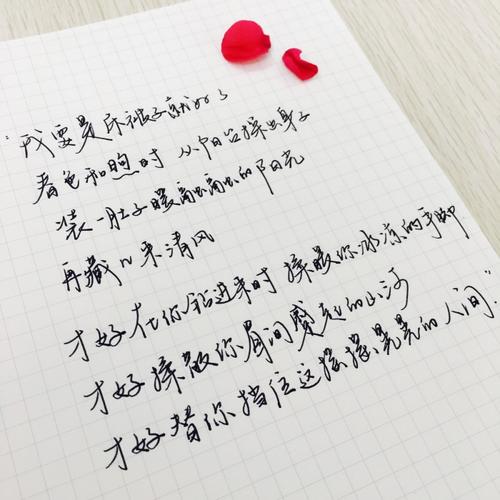 "我要是床被子就好了
春色和煦时 从阳台探出身子
装一肚子暖融融的阳光
再藏几朵清风
才好在你钻进来时 揉暖你冰凉的手脚
才好揉散你眉间蹙起的山河
才好替你挡住这摇摇晃晃的人间."